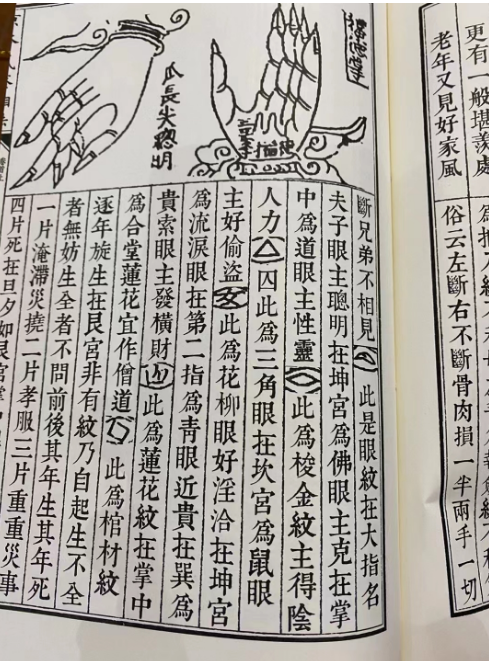 更有一般堪羡處
老年又見好家風
俗云左斷右不斷骨肉損一半兩手一切
瓜長尖聰明
斷兄弟不相見 此是眼紋在大指名
夫子眼主聰明在坤宮為佛眼主克在掌
中為道眼主性靈 此為梭金紋主得陰
人力 囚此為三角眼在坎宮為鼠眼
主好偷盗 此為花柳眼好淫洽在坤宮
為流淚眼在第二指為青眼近貴在巽為
貴索眼主發橫財 此為蓮花紋在掌中
為合堂蓮花宜作僧道 此為棺材紋
逐年旋生在艮宮非有紋乃自起生不全
者無妨生全者不問前後其年生其年死
一片淹滯災撓二片孝服三片重重災事
四片死在旦夕如艮宮